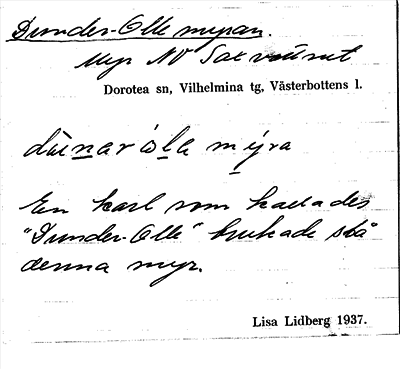 Dunder-Olle myran.
Myr NV Saxvattnet
Dorotea sn, Vilhelmina tg, Västerbottens l.
dùnar ola mýra
En karl som kallades
"Dunder-Olle" brukade slå
denna myr.
Lisa Lidberg 1937.